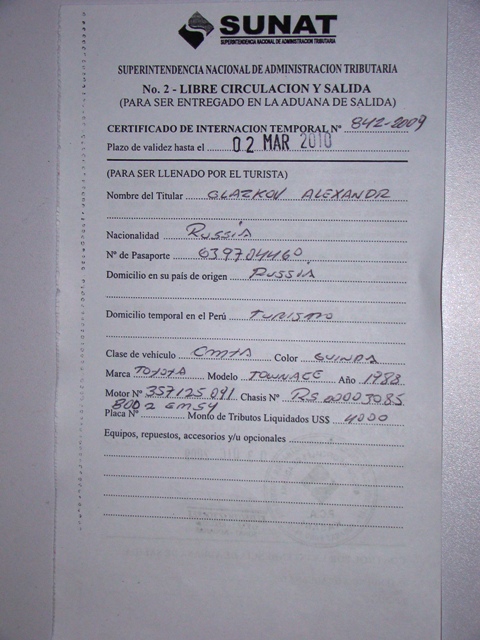 SUNAT
SUPERINTENDENCIA NACIONAL DE ADMINISTRACION TRIBUTARIA
SUPERINTENDENCIA NACIONAL DE ADMINISTRACION TRIBUTARIA
No. 2 - LIBRE CIRCULACION Y SALIDA
(PARA SER ENTREGADO EN LA ADUANA DE SALIDA)
CERTIFICADO DE INTERNACION TEMPORAL Nº 842-2009
Plazo de validez hasta el 02 MAR 2010
(PARA SER LLENADO POR EL TURISTA)
Nombre del Titular GLAZKOV ALEXANDR
Nacionalidad RUSSIA
Nº de Pasaporte 639704460
Domicilio en su país de origen RUSSIA
Domicilio temporal en el Perú TURISMO
Clase de vehículo CMTA Color GUINDA
Marca TOYOTA Modelo TOWNACE Año 1988
Motor Nº 357125091 Chasis Nº
Placa Nº 8002 Monto de Tributos Liquidados US$ 4000
Equipos, repuestos, accesorios y/u opcionales